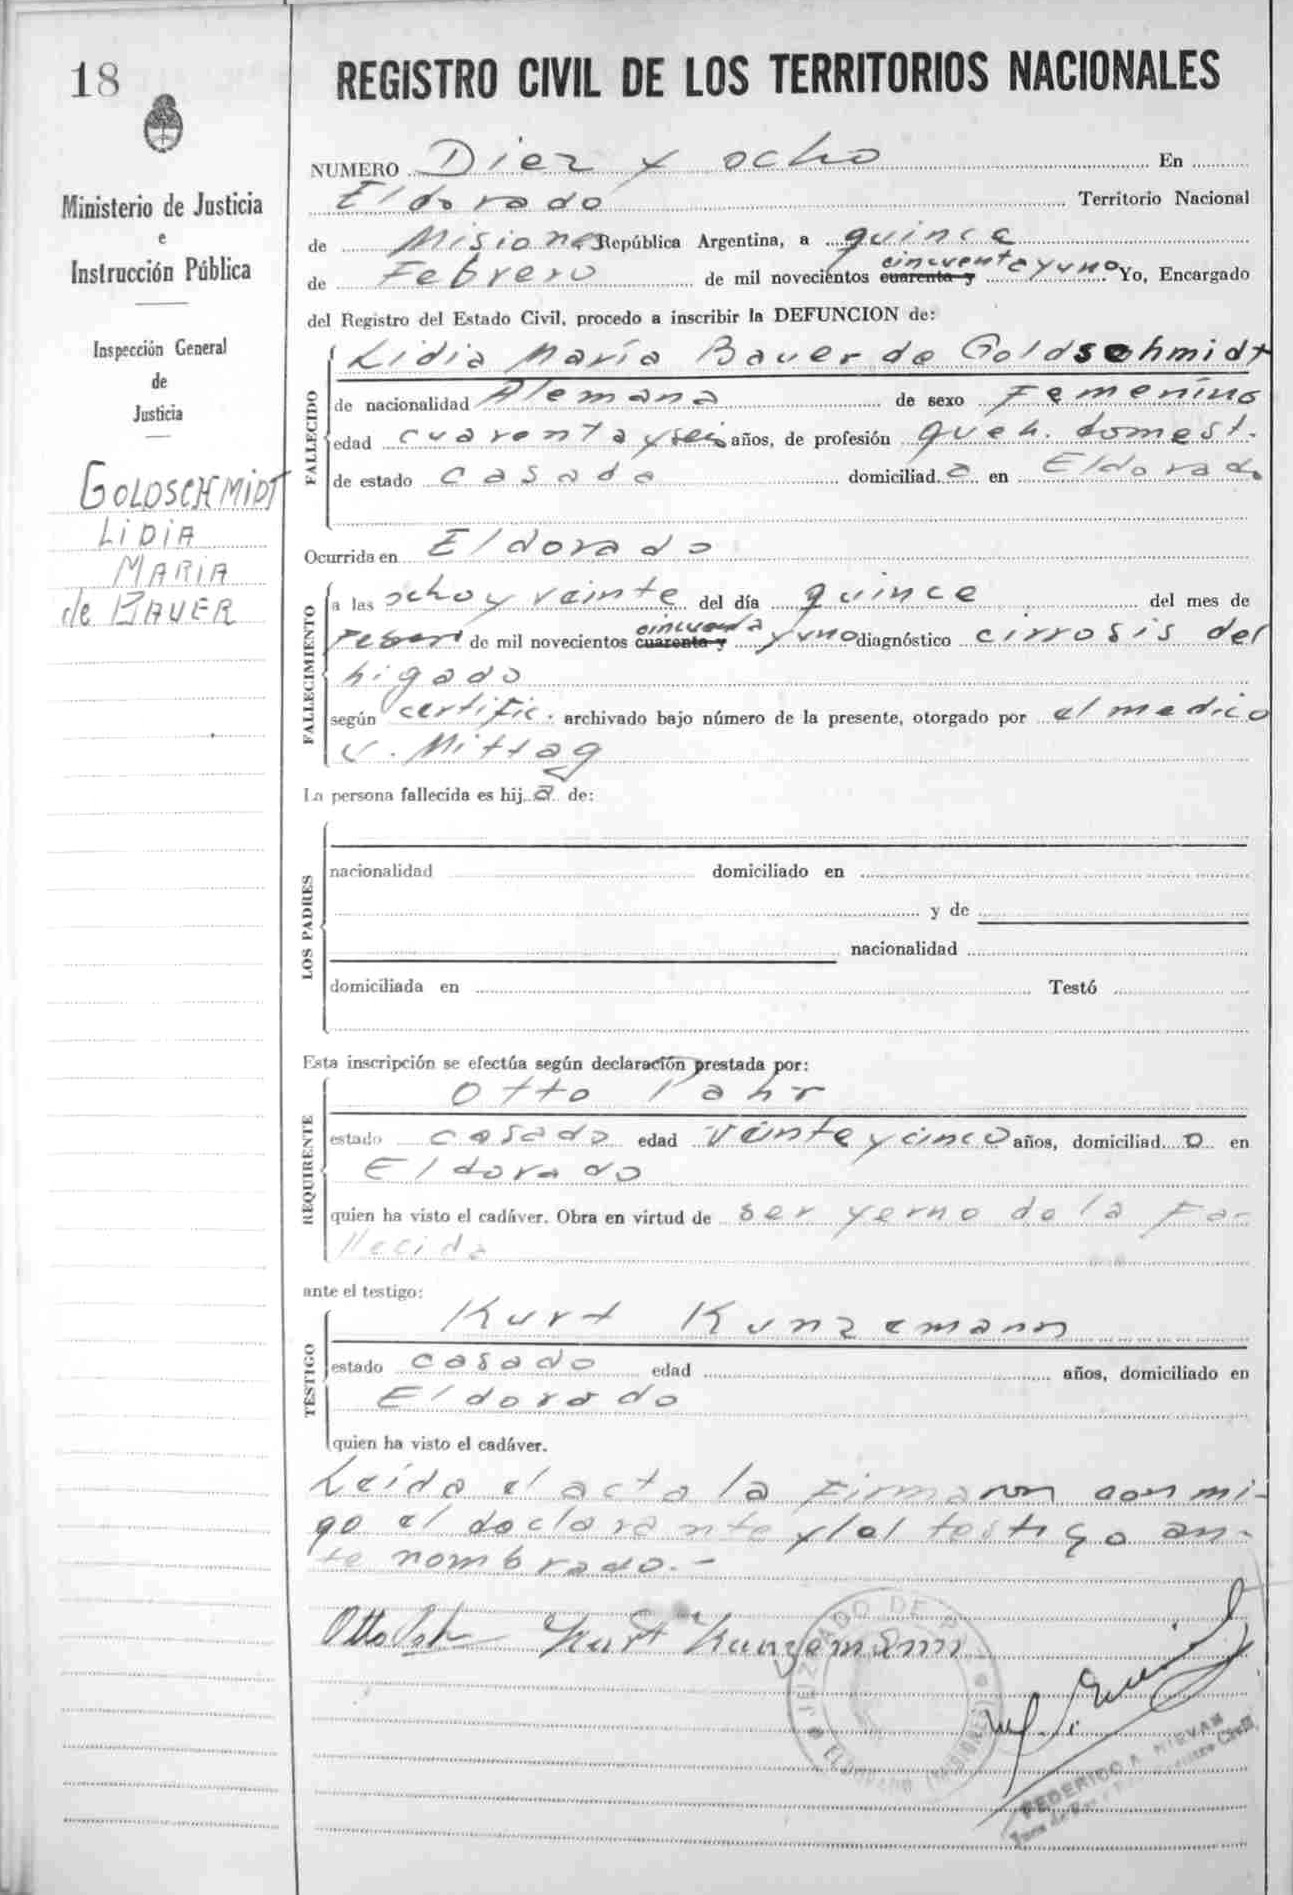 18
REGISTRO CIVIL DE LOS TERRITORIOS NACIONALES
Ministerio de Justicia
e
Instrucción Pública
Inspección General
de
Justicia
GOLDSCHMIDT
LIDIA
MARIA
de BAUER
NUMERO Diez y ocho En
Eldorado Territorio Nacional
de Misiones República Argentina, a quince
de Febrero de mil novecientos cuarenta y cincuenta y uno Yo, Encargado
del Registro del Estado Civil, procedo a inscribir la DEFUNCION de:
FALLECIDO
Lidia María Bauer de Goldschmidt
de nacionalidad Alemana de sexo Femenino
edad cuarenta y seis años, de profesión queh. domest.
de estado casada domiciliad a en Eldorado
Ocurrida en Eldorado
FALLECIMIENTO
a las ocho y veinte del día quince del mes de
Febrero de mil novecientos cuarenta y cincuenta y uno diagnóstico cirrosis del
higado
según certific. archivado bajo número de la presente, otorgado por el medico
V. Mittag
La persona fallecida es hij a de:
LOS PADRES
nacionalidad domiciliado en
y de
nacionalidad
domiciliada en Testó
Esta inscripción se efectúa según declaración prestada por:
REQUIRENTE
Otto Pahr
estado casado edad veinte y cinco años, domiciliad o en
Eldorado
quien ha visto el cadáver. Obra en virtud de ser yerno de la fa-
llecida
ante el testigo:
TESTIGO
Kurt Kunzemann
estado casado edad años, domiciliado en
Eldorado
quien ha visto el cadáver.
Leída el acta la firmaron conmi-
go el declarante y el testigo an-
te nombrado.-
Otto Pahr Kurt Kunzemann
JUZGADO DE PAZ
ELDORADO (MISIONES)
FEDERICO A. NIEVAS